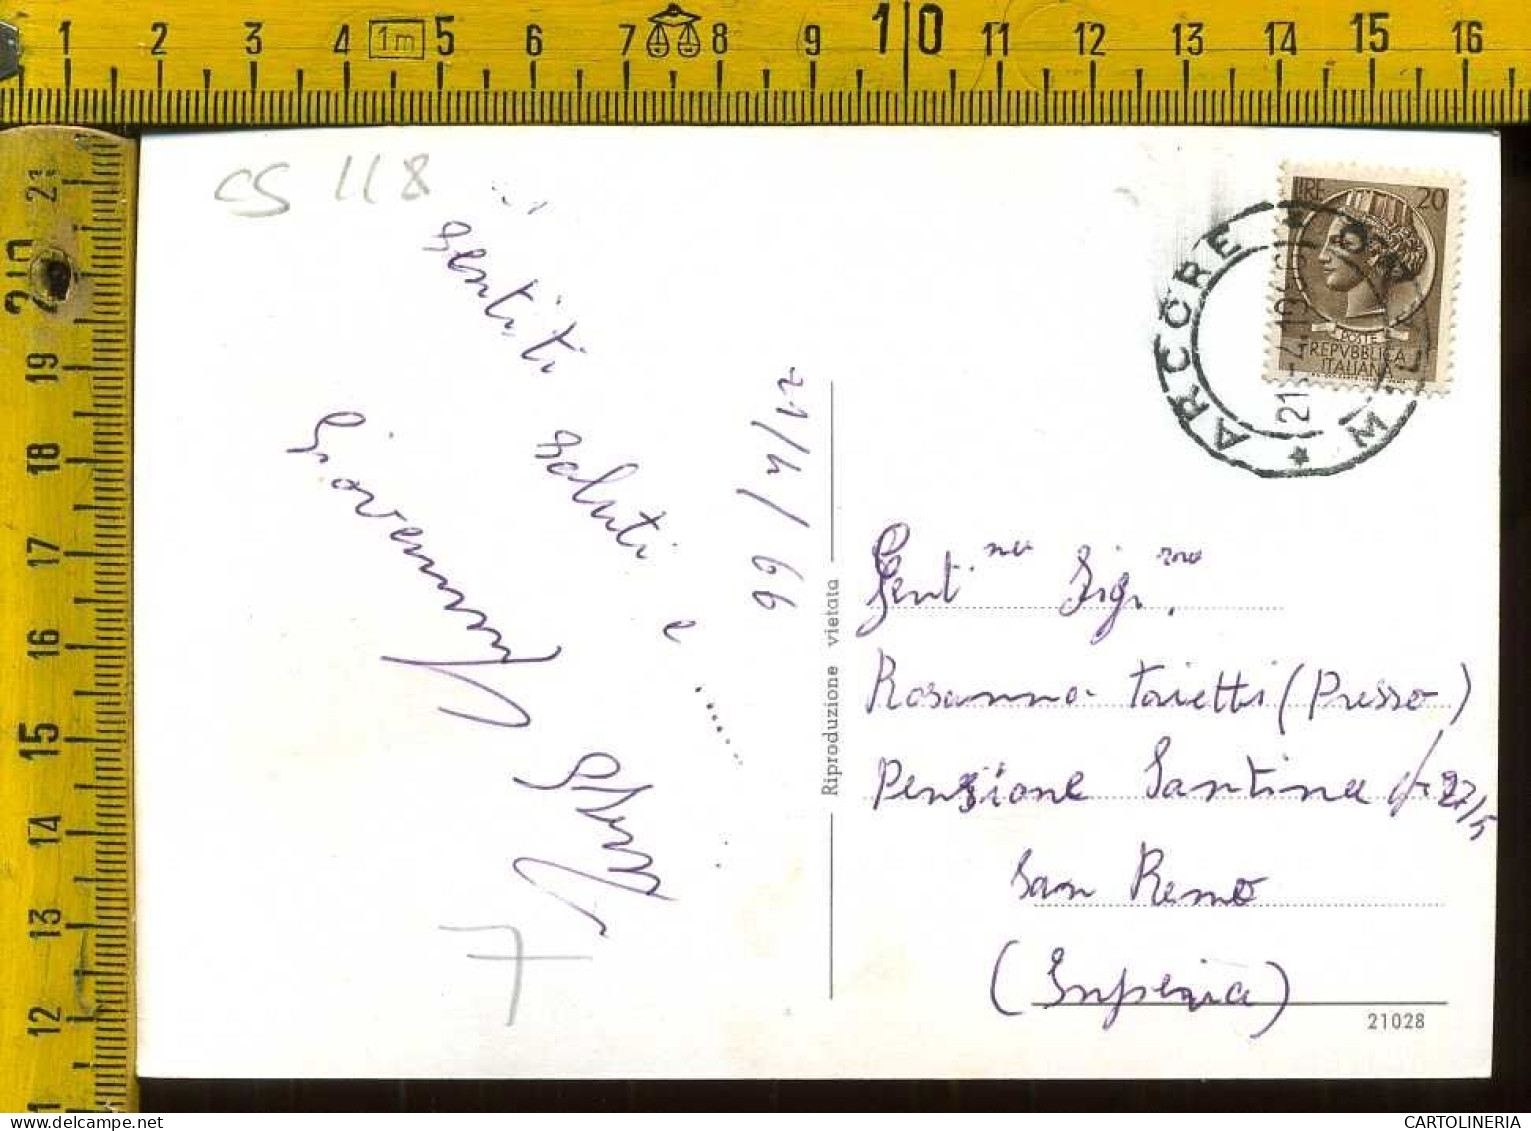 1 2 3 4 1m 5 6 7 8 9 10 11 12 13 14 15 16
21
20
19
18
17
16
15
14
13
12
11
CS 118
sentiti
saluti e ......
Giovanni
21/4/66
7
Riproduzione vietata
LIRE 20
POSTE
REPVBBLICA
ITALIANA
ARCORE
MILANO
21
Gent.ma Sig.na
Rosanna (Presso)
Pensione Santina
San Remo
(Imperia)
21028
CARTOLINERIA